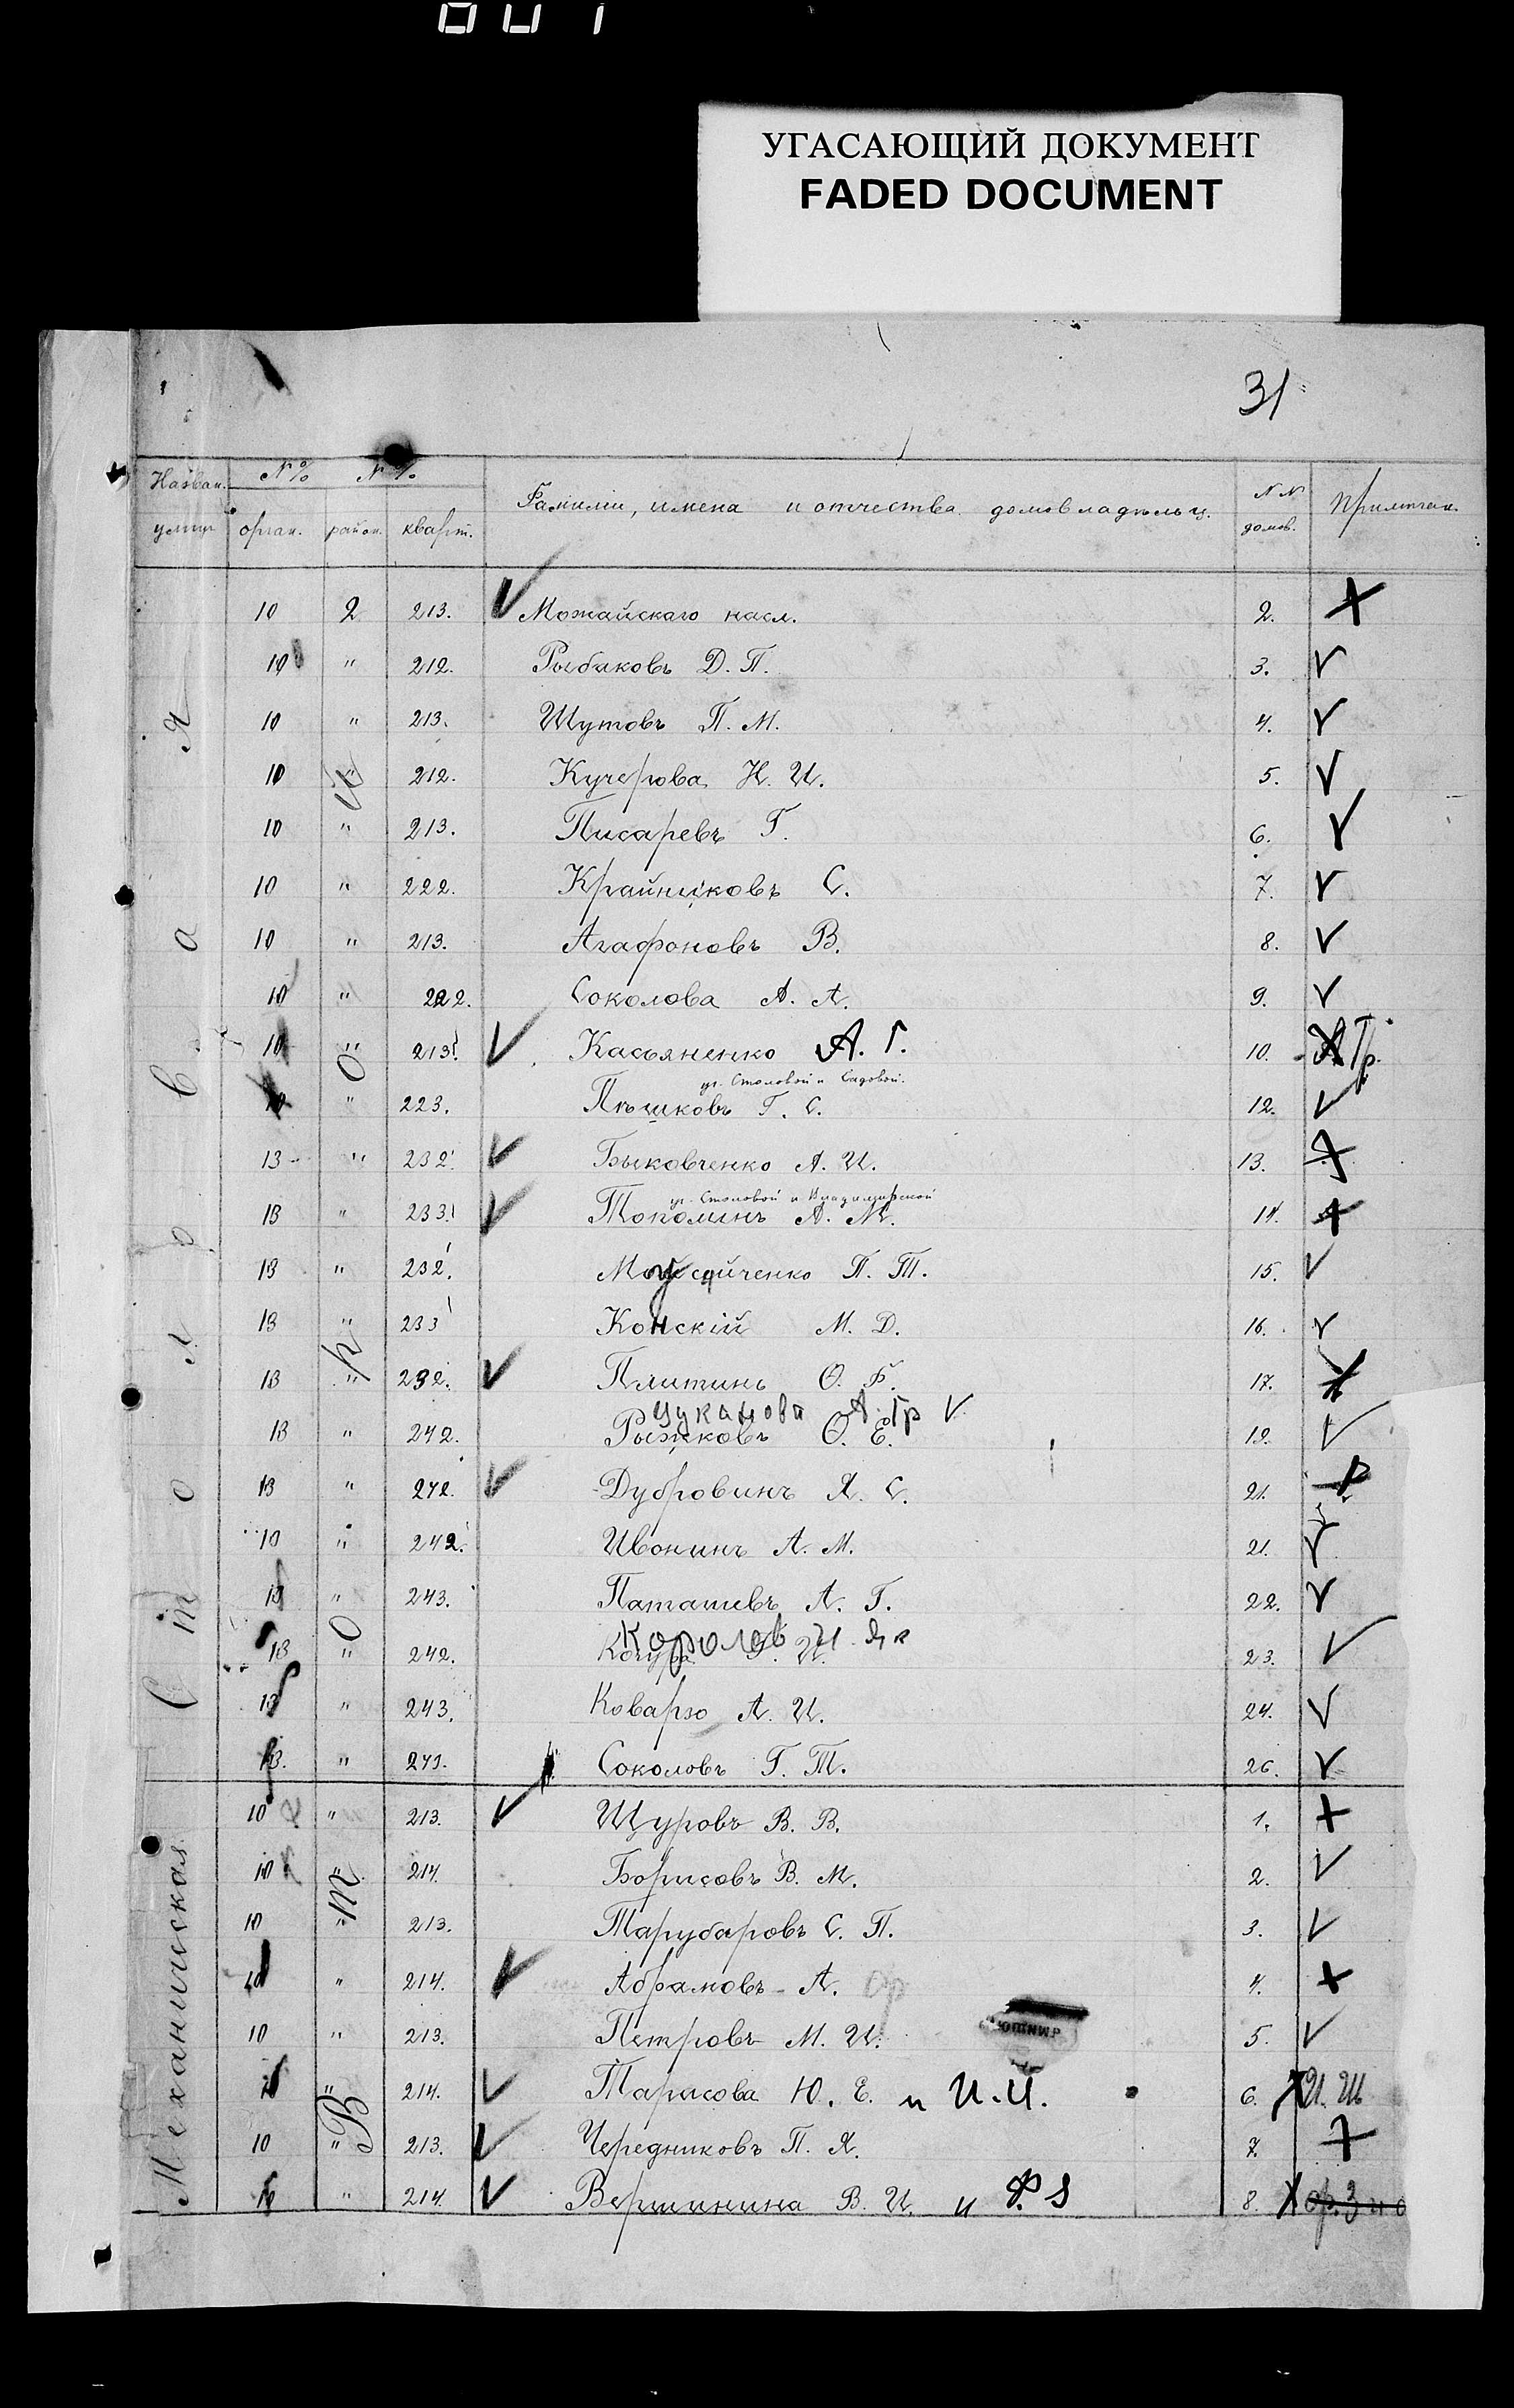 УГАСАЮЩИЙ ДОКУМЕНТ
FADED DOCUMENT
31
Назван. улиц №% орган. район. №% кварт. Фамилии, имена и отчества домовладѣльц. №№ домов. Примѣчан.
Столовая
Второй
10 2 213. V Можайскаго насл. 2. +
10 " 212. Рыбаковъ Д. П. 3. V
10 " 213. Шутовъ П. М. 4. V
10 " 212. Кучерова Н. И. 5. V
10 " 213. Писаревъ Г. 6. V
10 " 222. Крайниковъ С. 7. V
10 " 213. Агафоновъ В. 8. V
10 " 222. Соколова А. А. 9. V
10 " 213. V Касьяненко А. Г. 10. Гр.
уг. Столовой и Садовой.
" 223. Пѣшковъ Г. С. 12. V
13 " 232. V Быковченко А. И. 13. +
уг. Столовой и Владимирской
13 " 233. V Тополинъ А. М. 14. +
13 " 232. П. Т. 15. V
13 " 233 Конскій М. Д. 16. V
13 " 232. V Плитинъ Ѳ. Ф. 17.
Цуканова А. Гр V
13 " 242. Рыжковъ Ѳ. Е. 19. V
13 " 242. V Дубровинъ Я. С. 21.
10 " 242. Ивонинъ А. М. 21. V
13 " 243. Паташевъ А. Г. 22. V
Королев И. Як
13 " 242. И. 23. V
13 " 243. Коварзо А. И. 24. V
13. " 243. Соколовъ Г. Т. 26. V
Механическая
10 " 213. V Щуровъ В. В. 1. +
10 " 214. Борисовъ В. М. 2. V
10 " 213. Тарубаровъ С. П. 3. V
10 " 214. V Абрамовъ А. 4. +
10 " 213. Петровъ М. И. 5. V
" 214. V Тарасова Ю. Е. и И. И. 6.
10 " 213. V Чередниковъ П. Я. 7. +
10 " 214. V Вершинина В. И. и 8.